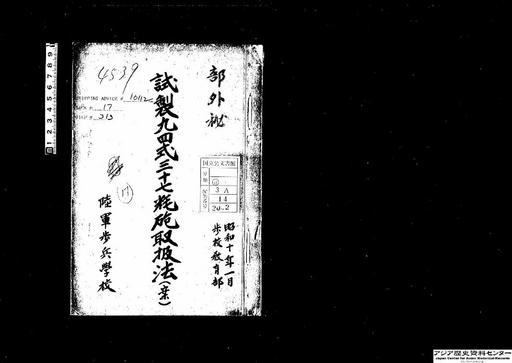 部外秘
試製九四式三十七粍砲取扱法(案)
昭和十年一月
歩校教育部
陸軍歩兵學校
4539
SHIPPING ADVICE # 10112
17
213
国立公文書館
3 A
14
20-2
アジア歴史資料センター
Japan Center for Asian Historical Records